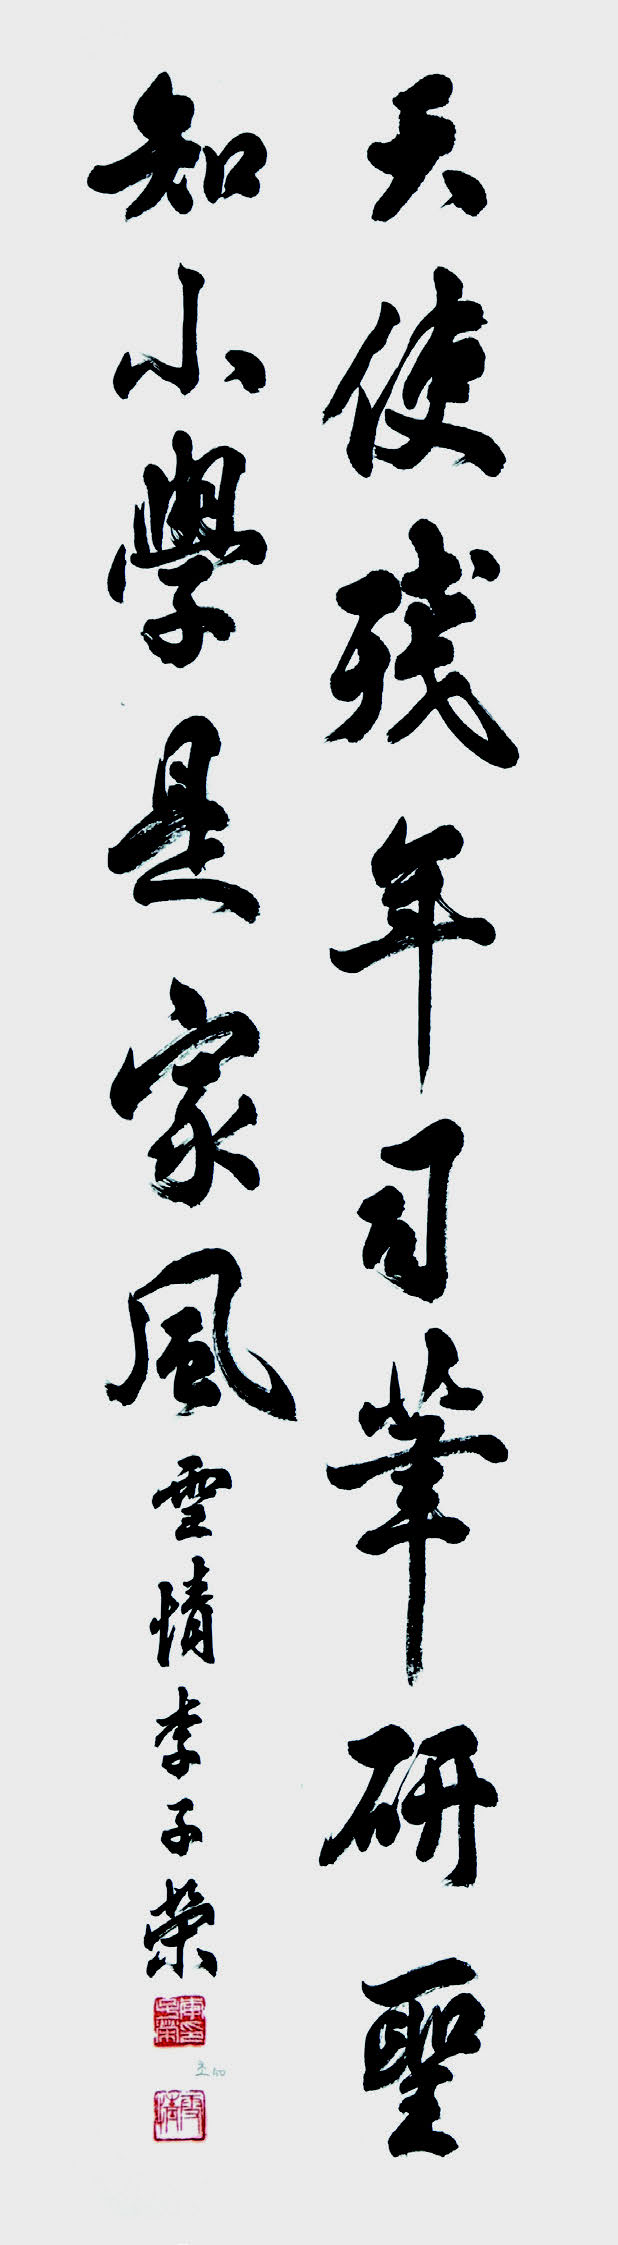 天使残年司筆研聖
知小學是家風
雪情李子榮